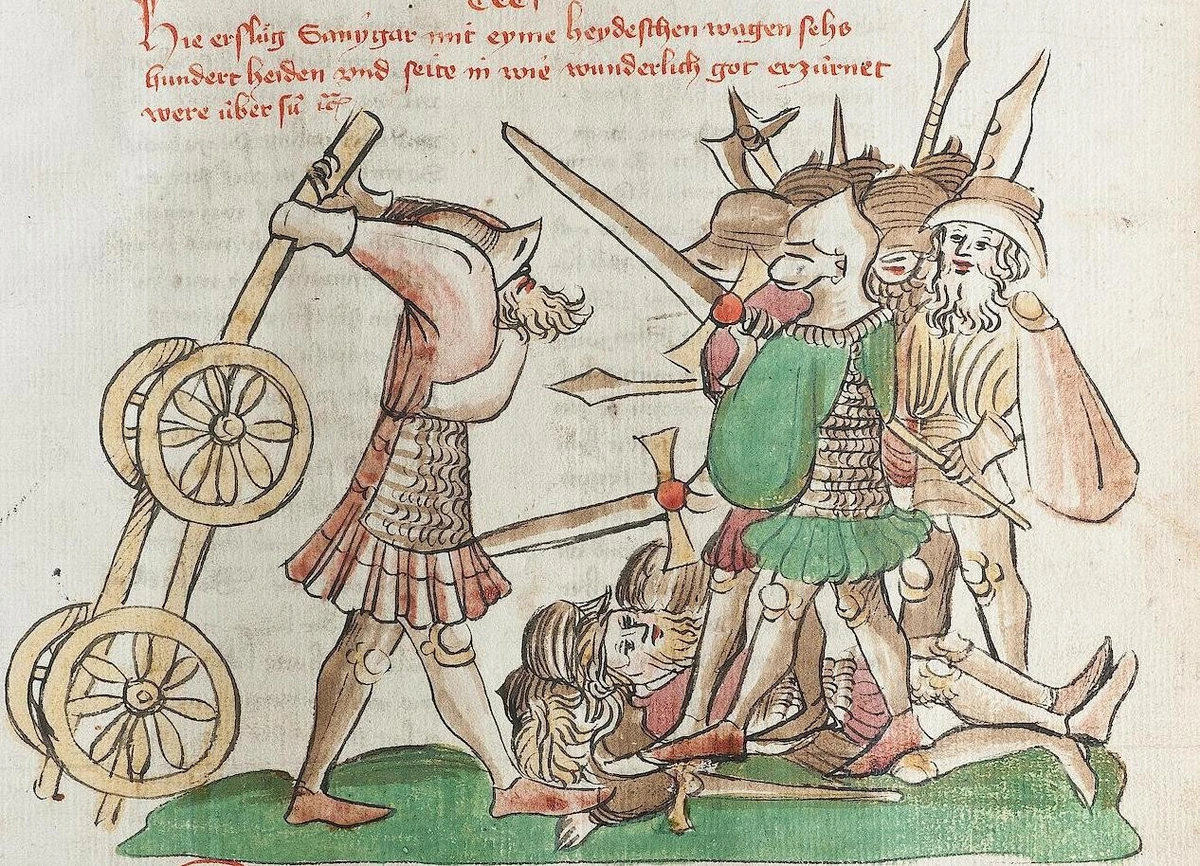 Hie erslůg Sanygar mit eyme heydeschen wagen sehs
hundert heiden vnd seite in wie wunderlich got erzürnet
were über sü